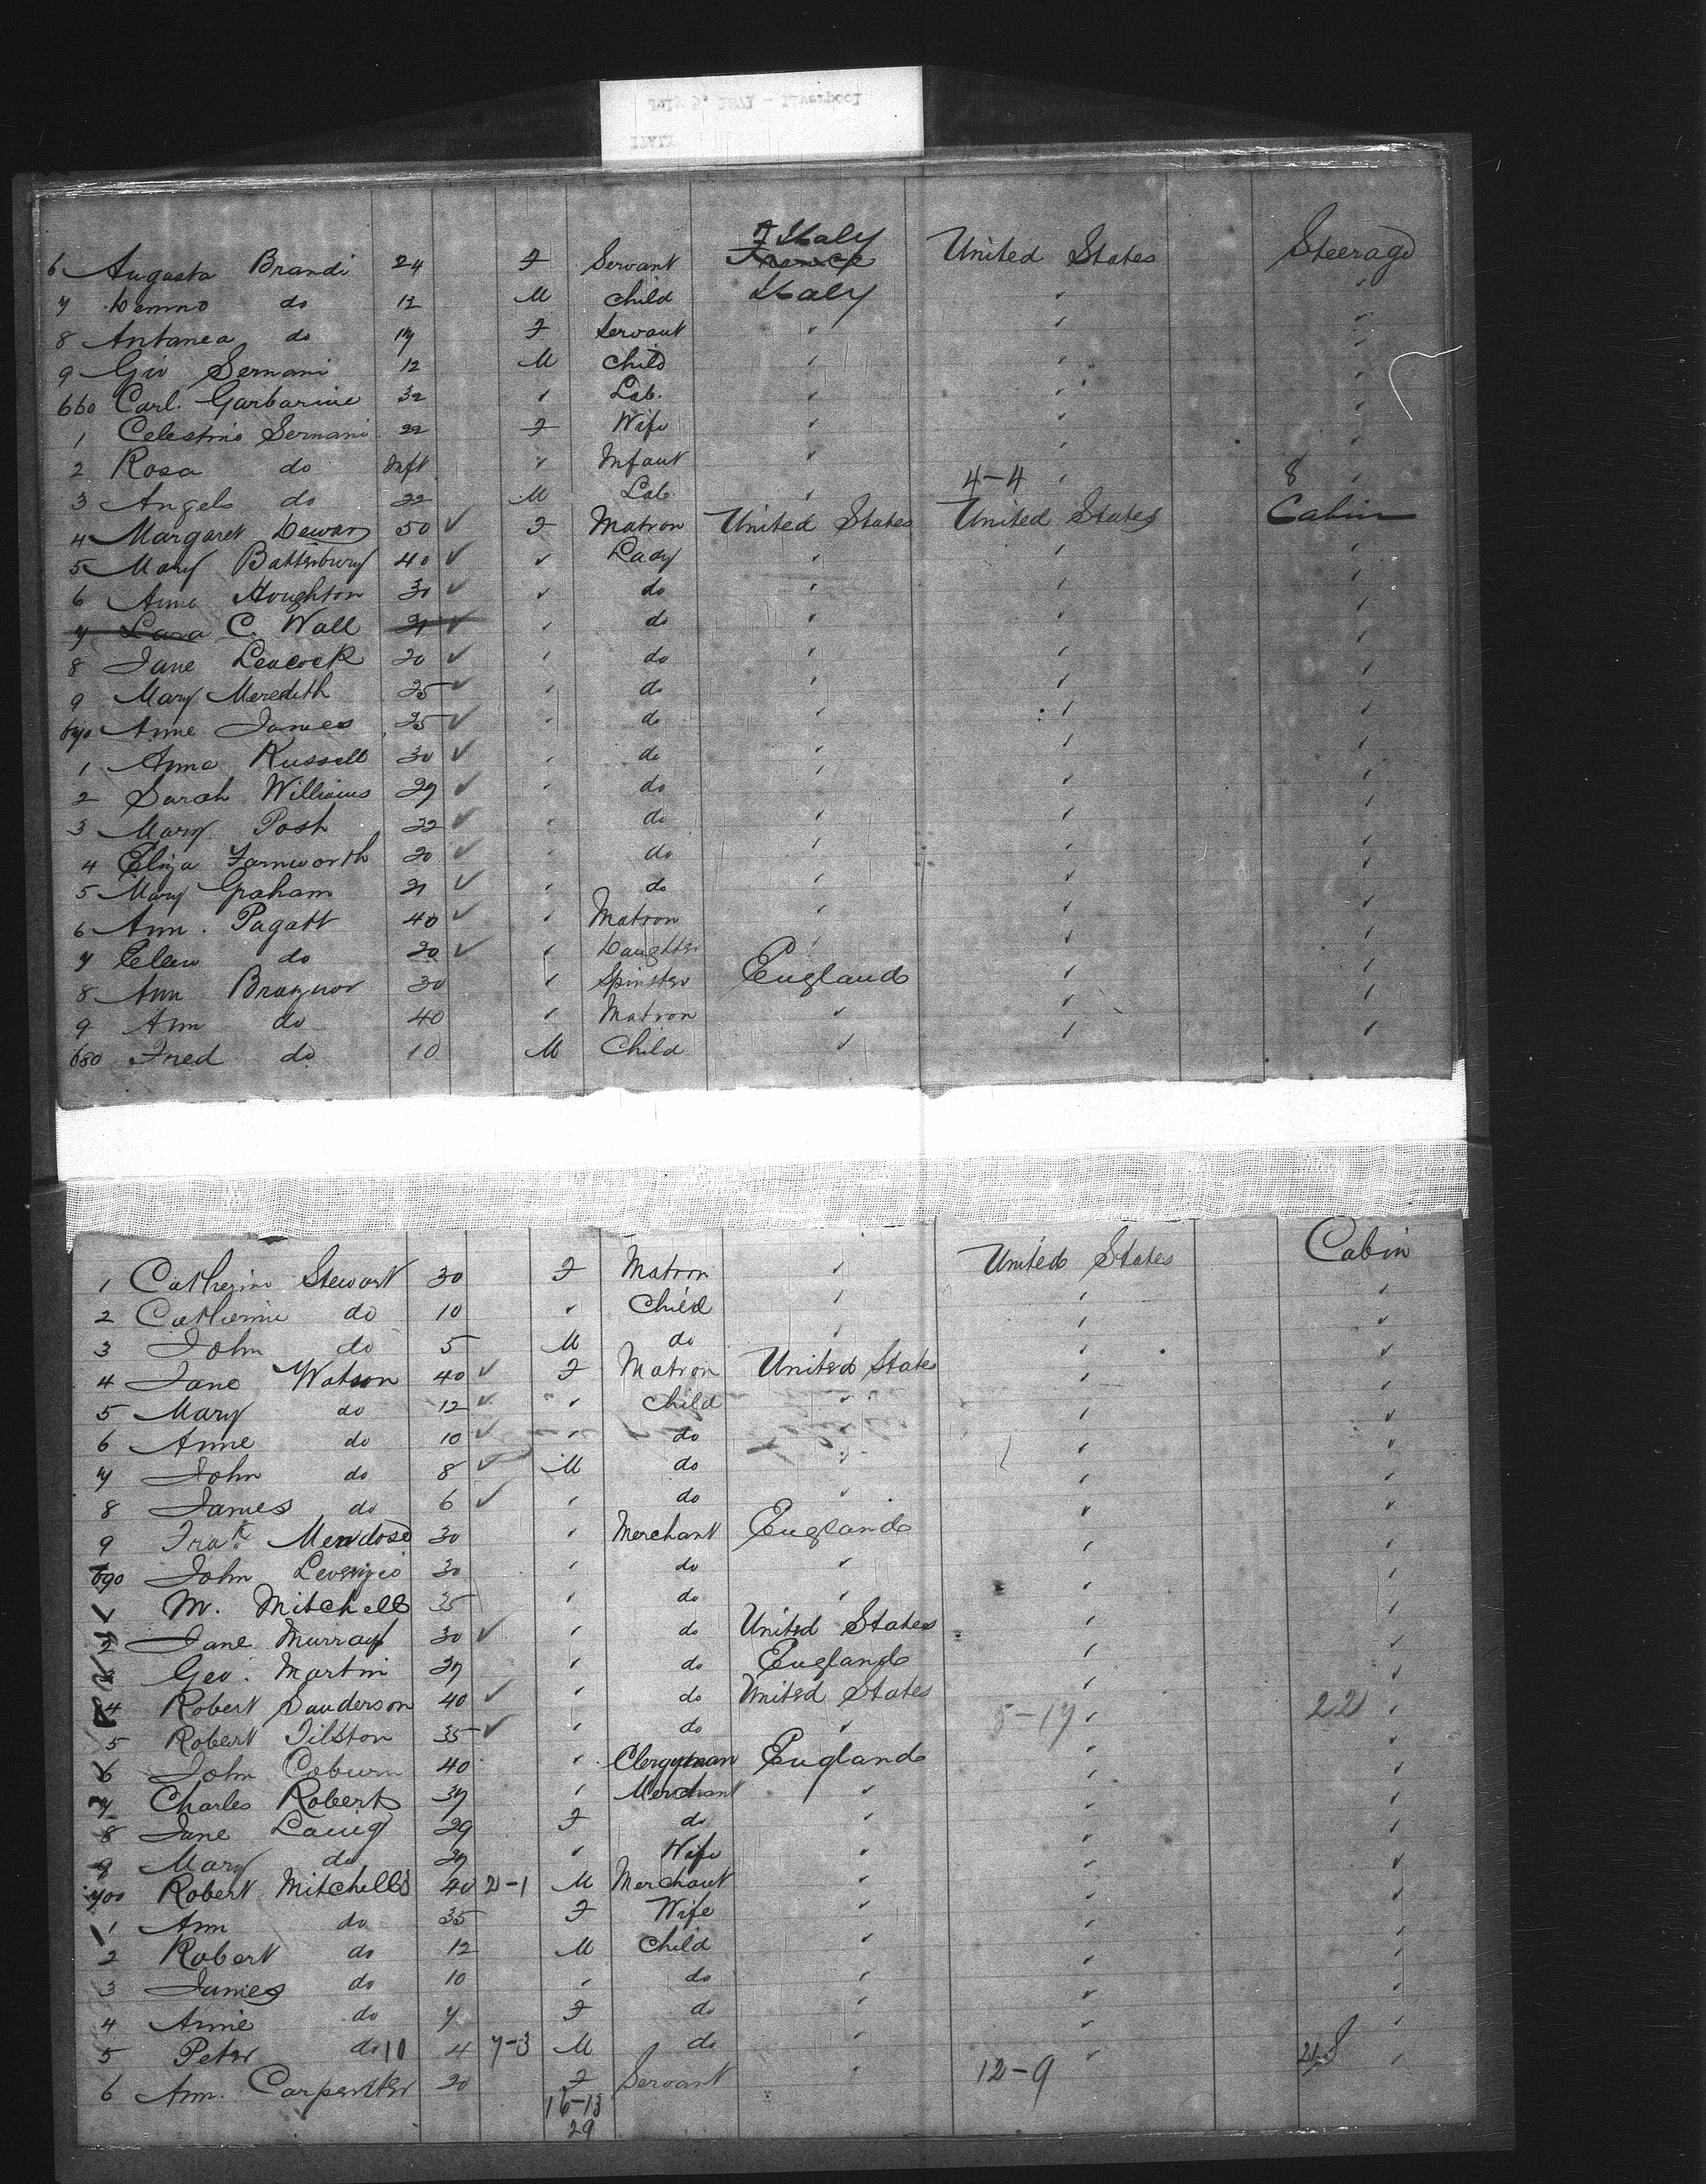 6 Augusta Brandi 24 F Servant F Italy France United States Steerage
7 do 12 M Child Italy ✓ ✓
8 Antanea do 17 F Servant ✓ ✓ ✓
9 Gio Sernani 12 M Child ✓ ✓ ✓
660 Carl. Garbarine 32 ✓ Lab. ✓ ✓ ✓
1 Celestino Sernani 22 F Wife ✓ ✓ ✓
2 Rosa do Inft ✓ Infant ✓ ✓ ✓
3 Angelo do 22 M Lab. ✓ 4-4 ✓ 8 ✓
4 Margaret Dewar 50 ✓ F Matron United States United States Cabin
5 Mary Battsbury 40 ✓ ✓ Lady ✓ ✓ ✓
6 Anne Houghton 30 ✓ ✓ do ✓ ✓ ✓
7 Lara C. Wall 21 ✓ ✓ do ✓ ✓ ✓
8 Jane Leacock 20 ✓ ✓ do ✓ ✓ ✓
9 Mary Meredith 25 ✓ ✓ do ✓ ✓ ✓
670 Anne James 25 ✓ ✓ do ✓ ✓ ✓
1 Anne Russell 30 ✓ ✓ do ✓ ✓ ✓
2 Sarah Williams 27 ✓ ✓ do ✓ ✓ ✓
3 Mary Posh 22 ✓ ✓ do ✓ ✓ ✓
4 Eliza Farnworth 20 ✓ ✓ do ✓ ✓ ✓
5 Mary Graham 21 ✓ ✓ do ✓ ✓ ✓
6 Ann. Pagatt 40 ✓ ✓ Matron ✓ ✓ ✓
7 Ellen do 20 ✓ ✓ Daughter ✓ ✓ ✓
8 Ann 30 ✓ Spinster England ✓ ✓
9 Ann do 40 ✓ Matron ✓ ✓ ✓
680 Fred do 10 M Child ✓ ✓ ✓
1 Catherine Stewart 30 F Matron ✓ United States Cabin
2 Catherine do 10 ✓ Child ✓ ✓ ✓
3 John do 5 M do ✓ ✓ ✓
4 Jane Watson 40 ✓ F Matron United States ✓ ✓
5 Mary do 12 ✓ ✓ Child ✓ ✓ ✓
6 Anne do 10 ✓ ✓ do ✓ ✓ ✓
7 John do 8 ✓ M do ✓ ✓ ✓
8 James do 6 ✓ ✓ do ✓ ✓ ✓
9 Frak Mendose 30 ✓ Merchant England ✓ ✓
690 John 30 ✓ do ✓ ✓ ✓
1 M. Mitchell 35 ✓ do ✓ ✓ ✓
2 Jane Murray 30 ✓ ✓ do United States ✓ ✓
3 Geo. Martin 27 ✓ do England ✓ ✓
4 Robert Sanderson 40 ✓ ✓ do United States ✓ ✓
5 Robert Tilston 35 ✓ ✓ do ✓ 5-17 ✓ 22 ✓
6 John Coburn 40 ✓ Clergyman England ✓ ✓
7 Charles Roberts 37 ✓ Merchant ✓ ✓ ✓
8 Jane Laing 29 F do ✓ ✓ ✓
9 Mary do 27 ✓ Wife ✓ ✓ ✓
700 Robert Mitchells 40 2-1 M Merchant ✓ ✓ ✓
1 Ann do 35 F Wife ✓ ✓ ✓
2 Robert do 12 M Child ✓ ✓ ✓
3 James do 10 ✓ do ✓ ✓ ✓
4 Annie do 7 F do ✓ ✓ ✓
5 Peter do 10 4 7-3 M do ✓ ✓ ✓
6 Ann. Carpenter 20 F Servant ✓ 12-9 ✓
16-13
29